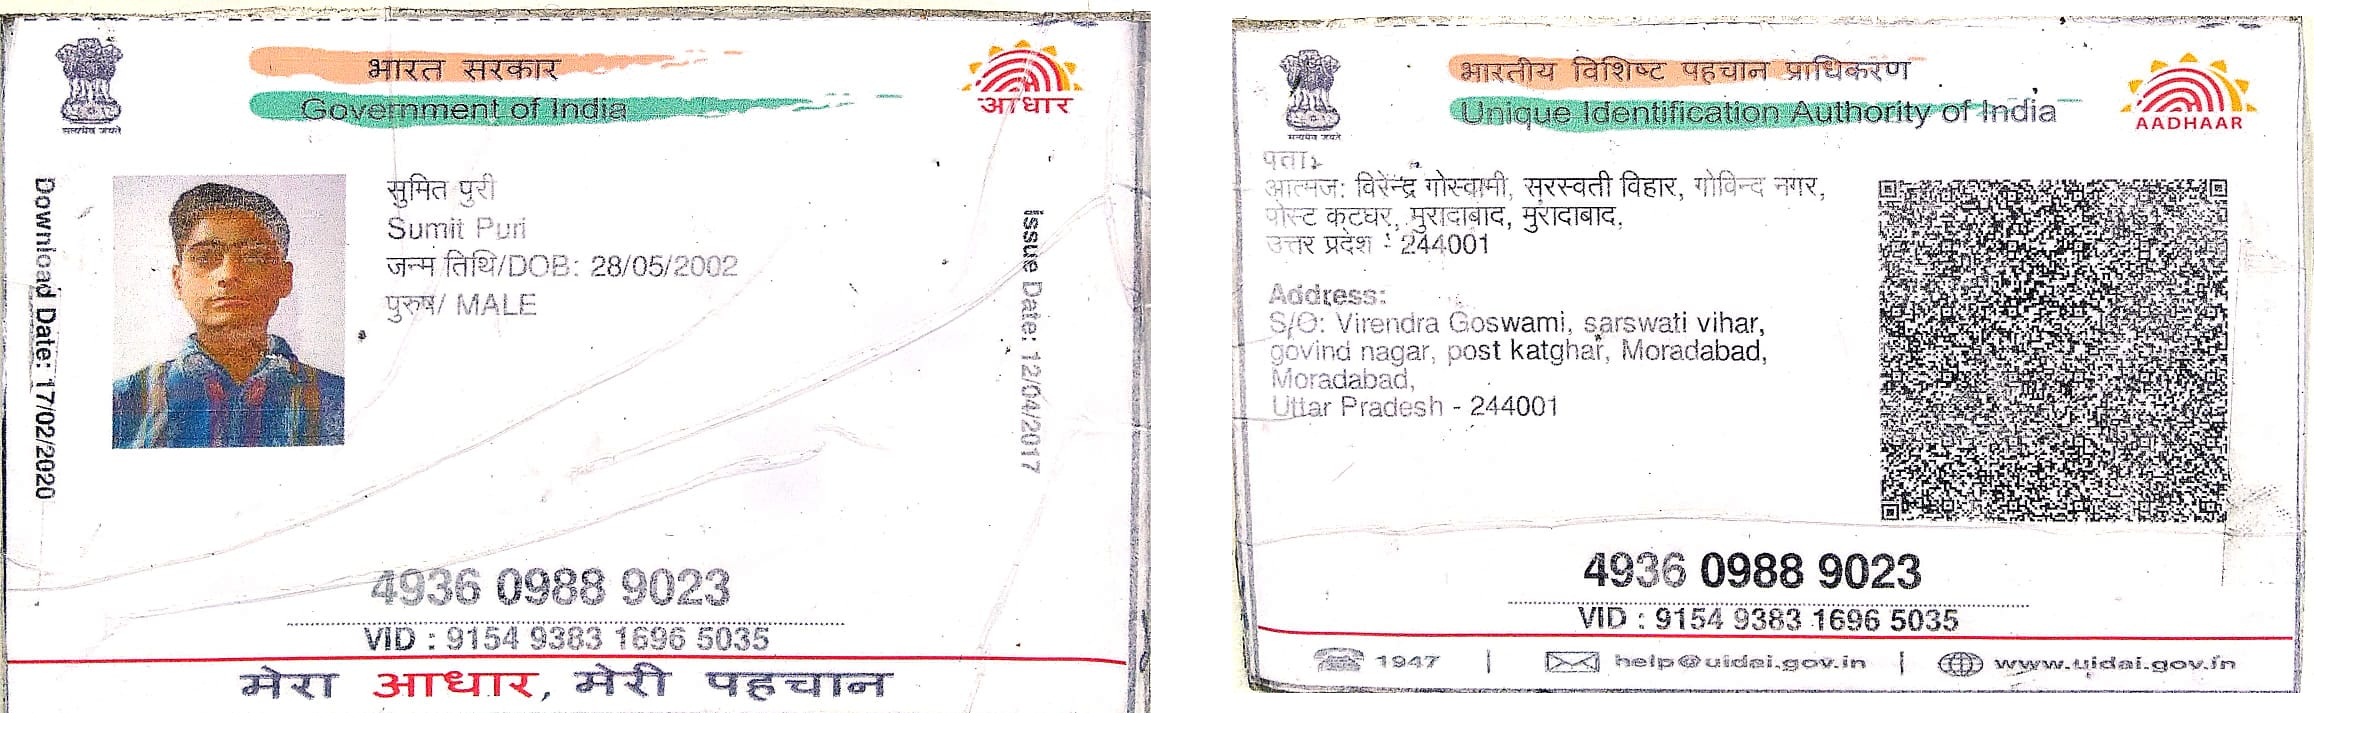 भारत सरकार
Government of India
सत्यमेव जयते
आधार
Download Date: 17/02/2020
सुमित पुरी
Sumit Puri
जन्म तिथि/DOB: 28/05/2002
पुरुष/ MALE
Issue Date: 12/04/2017
4936 0988 9023
VID : 9154 9383 1696 5035
मेरा आधार, मेरी पहचान
भारतीय विशिष्ट पहचान प्राधिकरण
Unique Identification Authority of India
सत्यमेव जयते
AADHAAR
पता:
आत्मज: विरेन्द्र गोस्वामी, सरस्वती विहार, गोविन्द नगर,
पोस्ट कटघर, मुरादाबाद, मुरादाबाद,
उत्तर प्रदेश - 244001
Address:
S/O: Virendra Goswami, sarswati vihar,
govind nagar, post katghar, Moradabad,
Moradabad,
Uttar Pradesh - 244001
4936 0988 9023
VID : 9154 9383 1696 5035
1947 | help@uidai.gov.in | www.uidai.gov.in